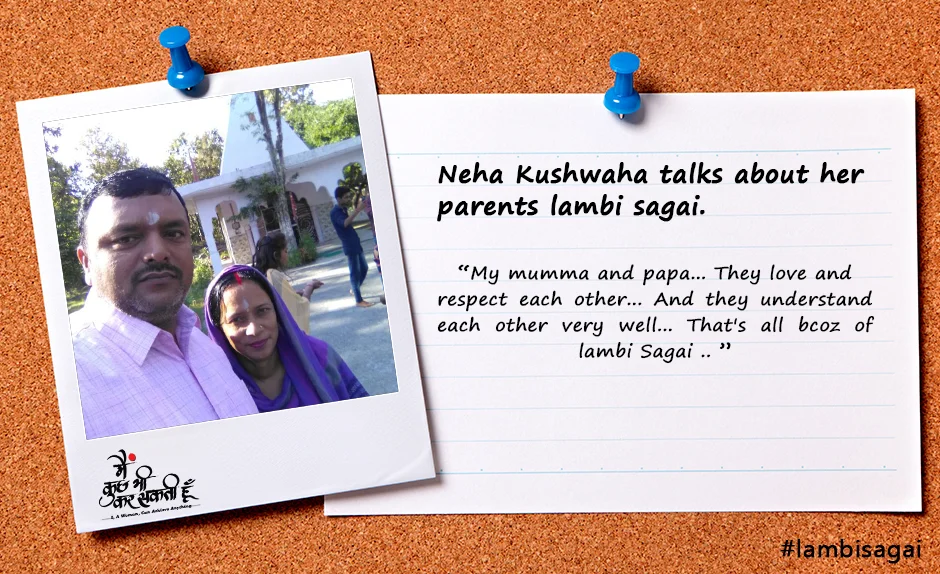 Neha Kushwaha talks about her
parents lambi sagai.
“My mumma and papa... They love and
respect each other... And they understand
each other very well... That's all bcoz of
lambi Sagai .. ”
मैं
कुछ भी
कर सकती हूँ
I, A Woman, Can Achieve Anything
#lambisagai